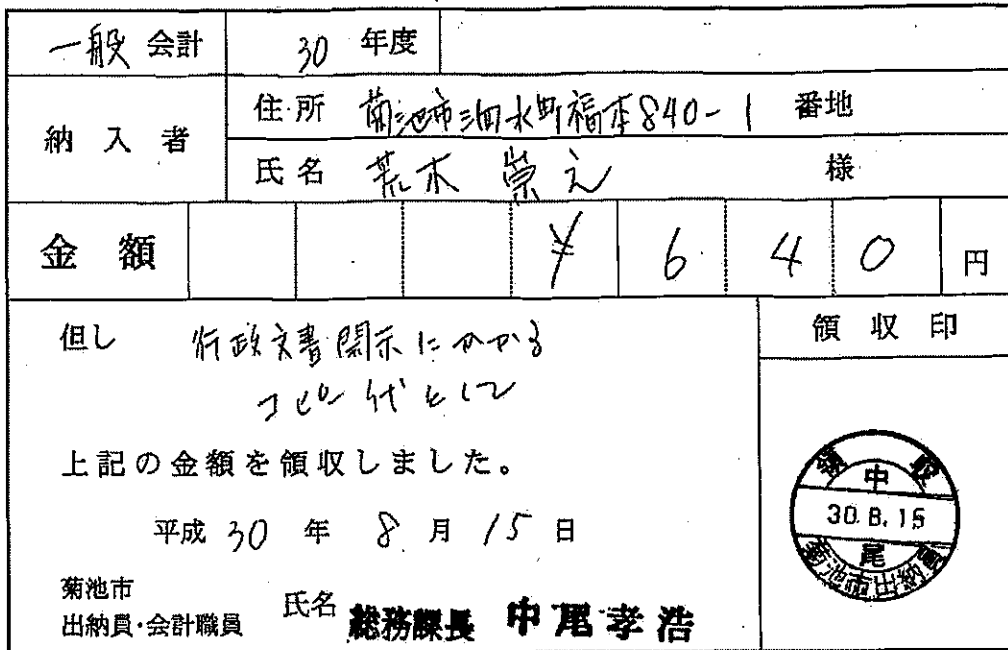 一般 会計 30 年度
納入者 住所 菊池市泗水町福本840-1 番地
氏名 荒木 崇之 様
金額 ¥ 6 4 0 円
但し 行政文書開示にかかる
コピー代として
上記の金額を領収しました。
平成 30 年 8 月 15 日
菊池市
出納員・会計職員 氏名 総務課長 中尾孝浩
領収印
領収
中
30.8.15
尾
菊池市出納員